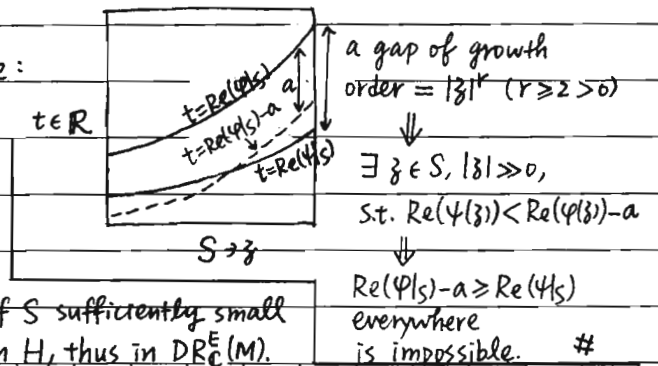 e:
t∈ℝ
t=Re(φ|s)
a
t=Re(φ|s)-a
t=Re(ψ|s)
S∋z
a gap of growth
order = |z|^r (r≥2>0)
⇓
∃ z∈S, |z|≫0,
s.t. Re(ψ(z))<Re(φ(z))-a
⇓
Re(φ|s)-a≥Re(ψ|s)
everywhere
is impossible. #
f S sufficiently small
n H, thus in DR^E_C(M).